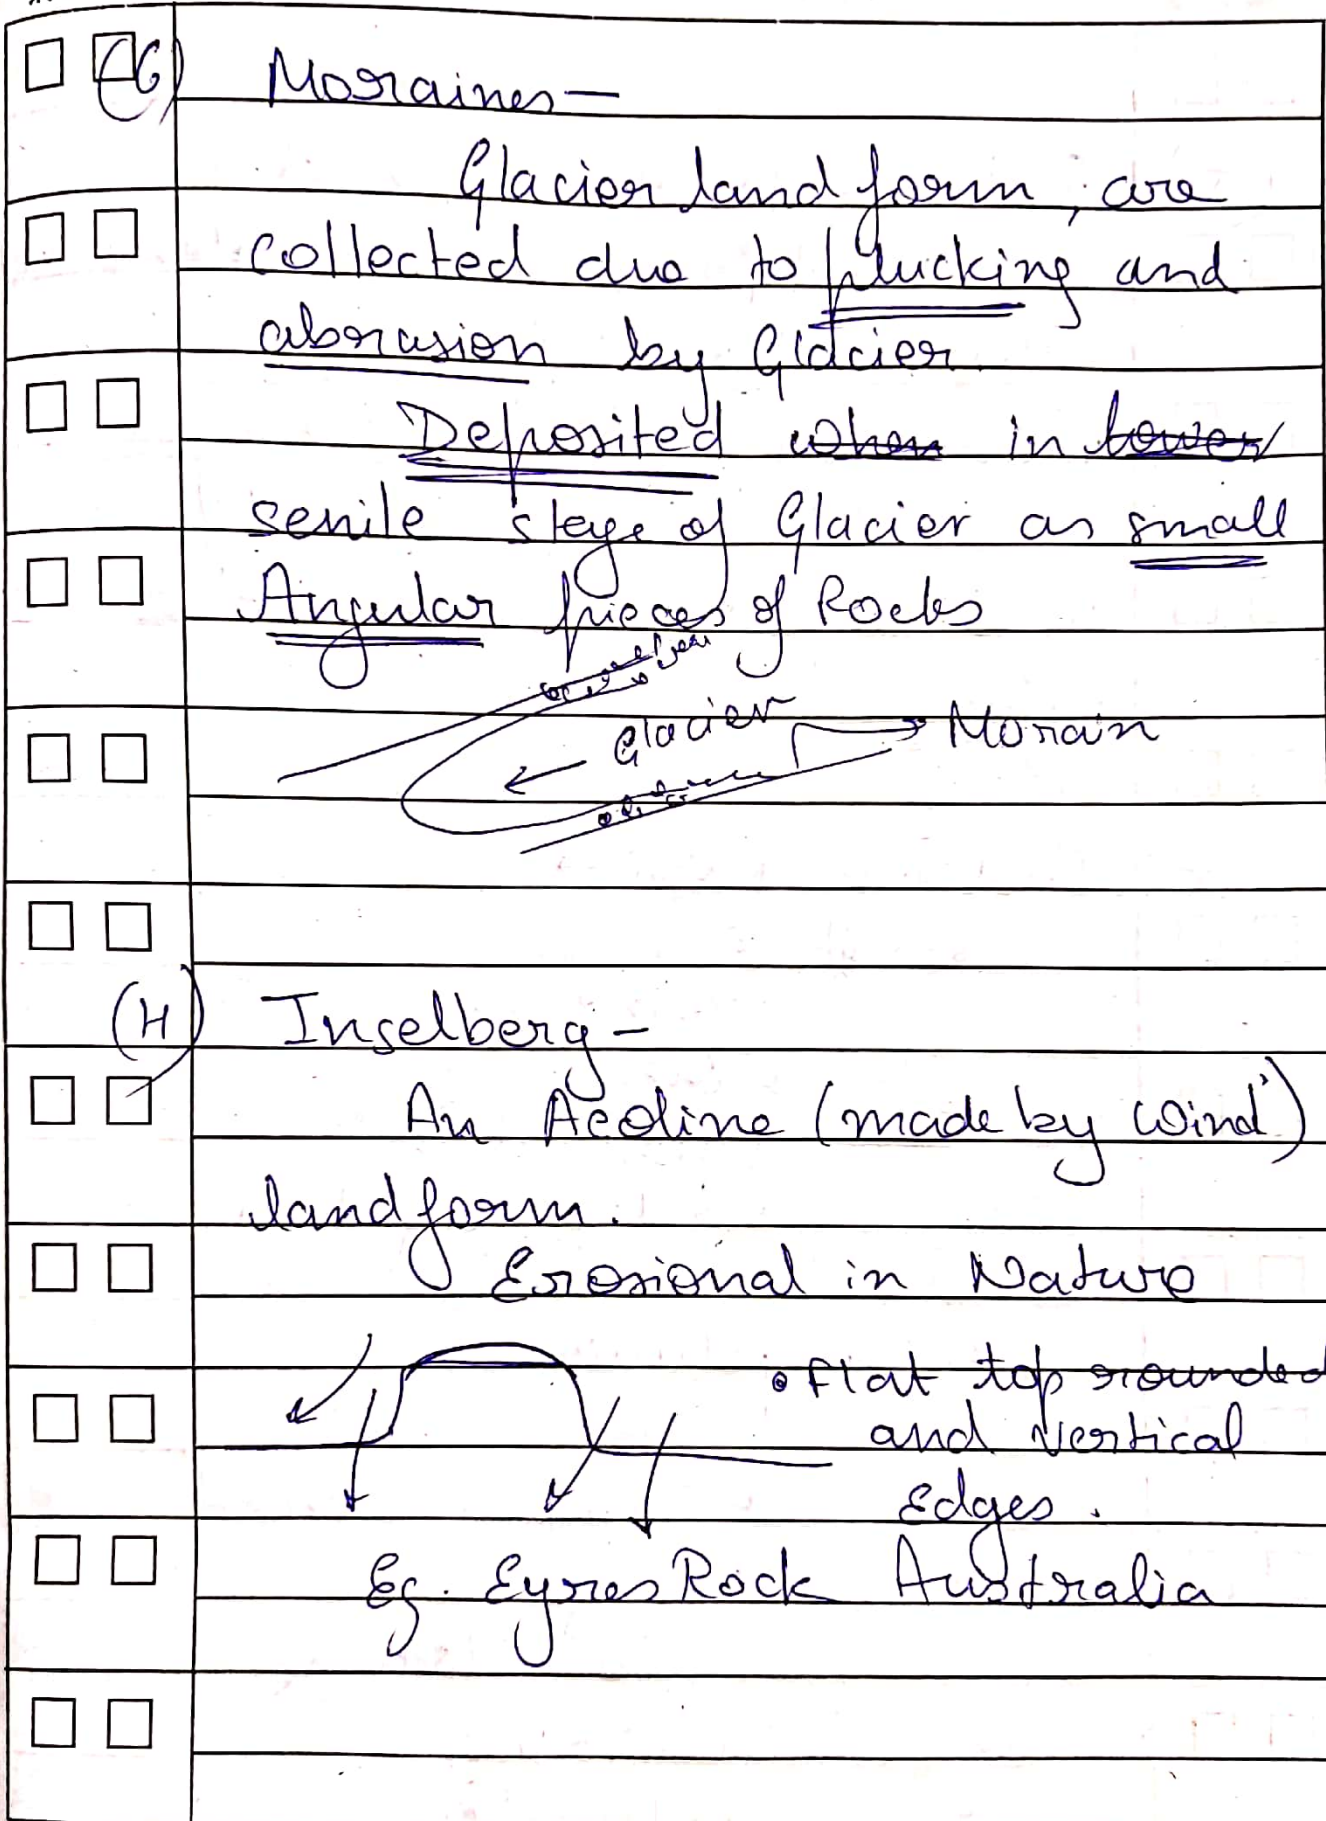 (G) Moraines—
Glacier land form, are
collected due to plucking and
abrasion by Glacier
Deposited when in lower
senile stage of Glacier as small
Angular pieces of Rocks
Glacier
Morain
(H) Inselberg -
An Aeoline (made by wind)
landform.
Erosional in Nature
• flat top rounded
and vertical
Edges.
Eg. Eyres Rock Australia